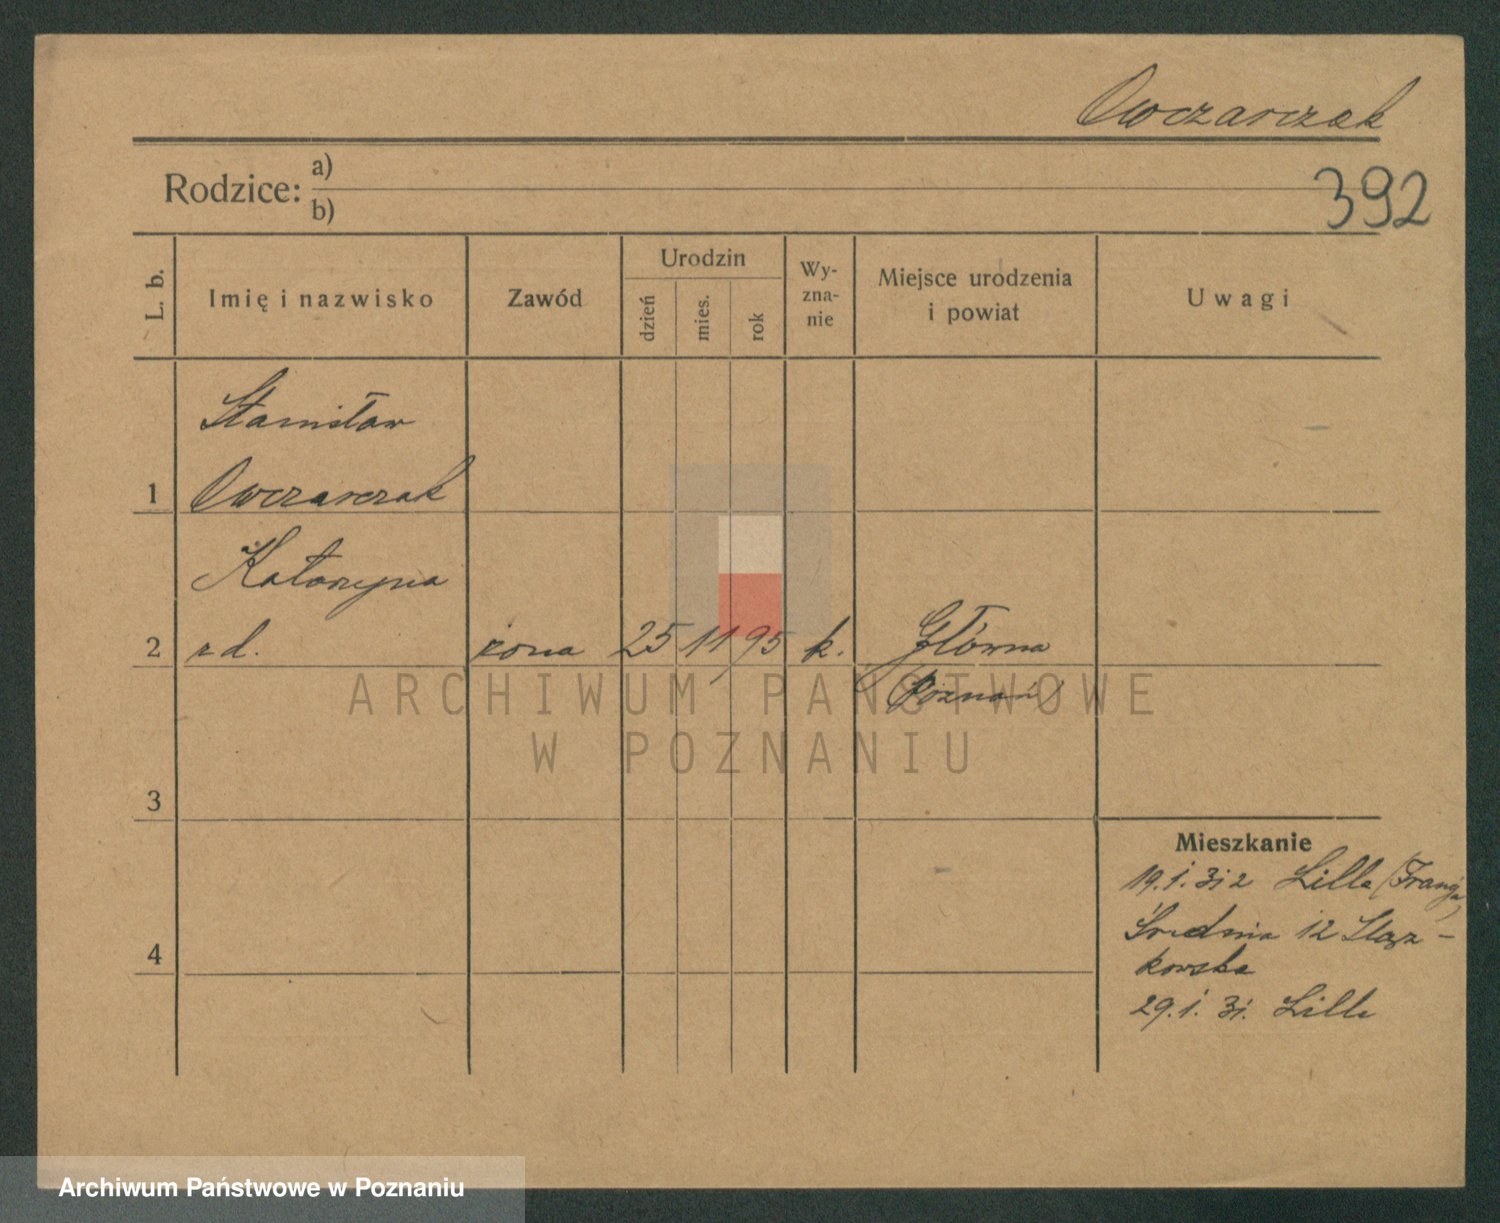 Owczarczak
Rodzice:
a)
b)
392
L. b.
Imię i nazwisko
Zawód
Urodzin
dzień
mies.
rok
Wy-
zna-
nie
Miejsce urodzenia
i powiat
Uwagi
Stanisław
1 Owczarczak
Katarzyna
2 zd. żona 25 11 95 k. Główna
(Poznań)
3
4
Mieszkanie
19.1.31 z Lille (Francja)
Średnia 12
kowska
29.1.31. Lille
ARCHIWUM PAŃSTWOWE
W POZNANIU
Archiwum Państwowe w Poznaniu